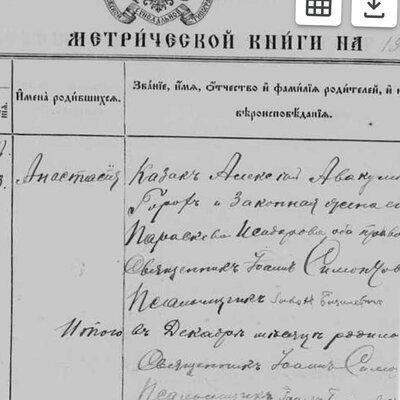 МЕТРИ́ЧЕСКОЙ КНИ́ГИ НА 19
Имена̀ роди́вшихсѧ.
Зва́нїе, и҆́мѧ, ѻ҆́тчество и҆ фами́лїѧ роди́телей, и҆
вѣроисповѣ́данїѧ.
Анастасія
Казакъ Алексей Авакум
и Законная жена е
Параскева Исидорова оба право
Священникъ Іоаннъ Симо
Псаломщикъ
Итого
въ Декабрѣ мѣсяцѣ родило
Священникъ Іоаннъ Симо
Псаломщикъ